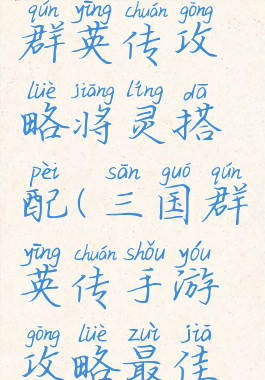 qún yīng chuán gōng
群英传攻
lüè jiāng líng dā
略将灵搭
pèi sān guó qún
配(三国群
yīng chuán shǒu yóu
英传手游
gōng lüè zuì jiā
攻略最佳